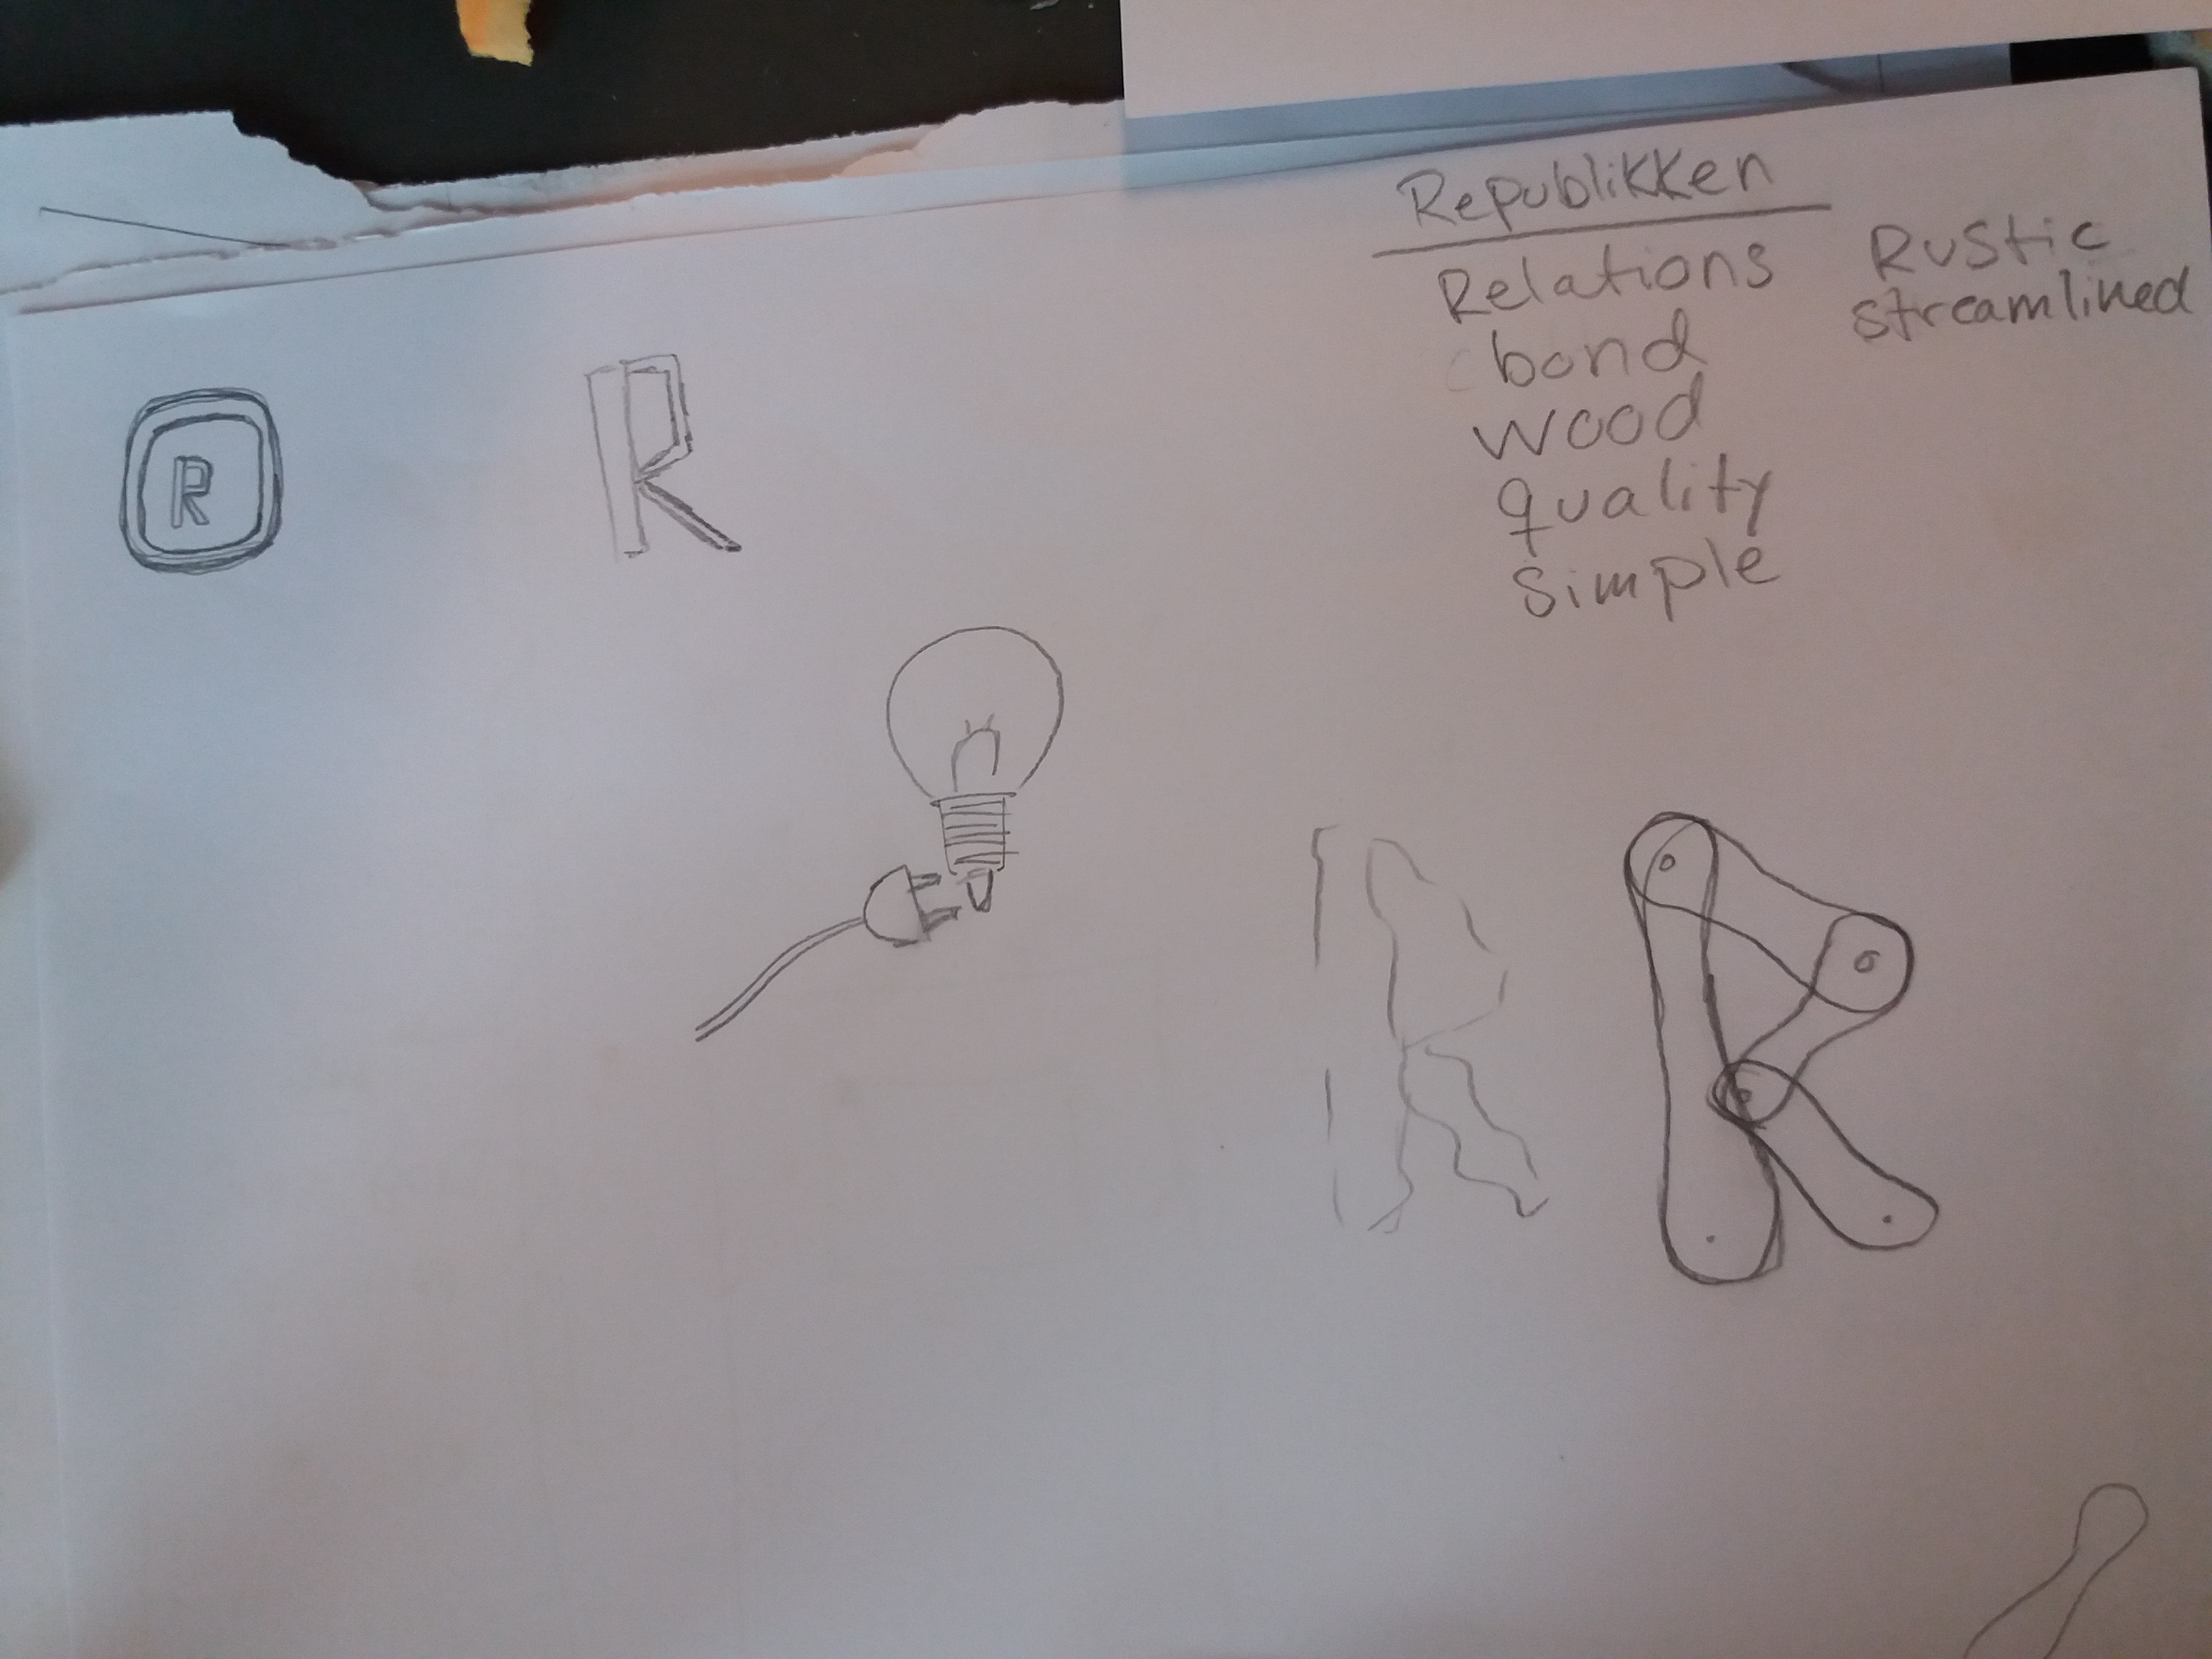 Republikken
Relations
bond
wood
quality
simple
Rustic
streamlined
R
R
R